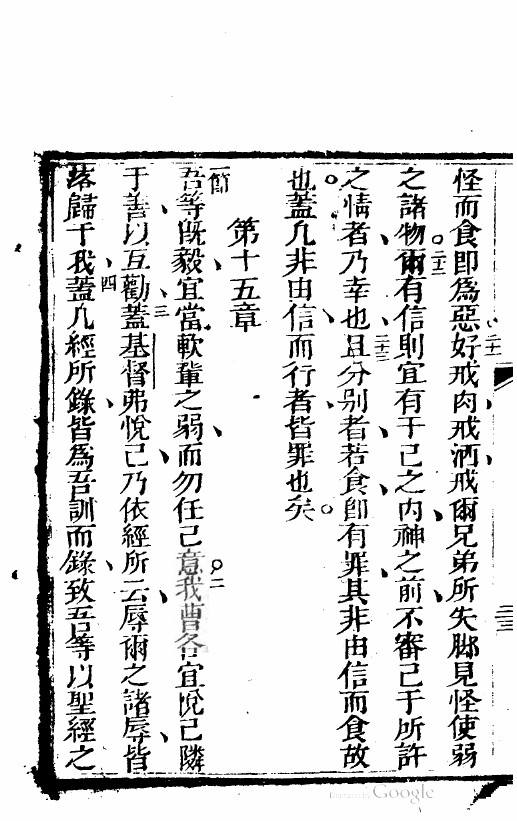 怪而食即為惡。二十一好戒肉戒酒戒爾兄弟所失腳見怪使弱
之諸物。二十二爾有信則宜有于己之内神之前不審己于所許
之情者乃幸也二十三且分别者若食即有罪其非由信而食故
也蓋凡非由信而行者皆罪也矣。
第十五章
節吾等旣毅宜當軟輩之弱而勿任己意。二我曹各宜悅己隣
于善以互勸三蓋基督弗悅己乃依經所云辱爾之諸辱皆
落歸于我四蓋凡經所錄皆為吾訓而錄致吾等以聖經之
二三
Digitized by Google